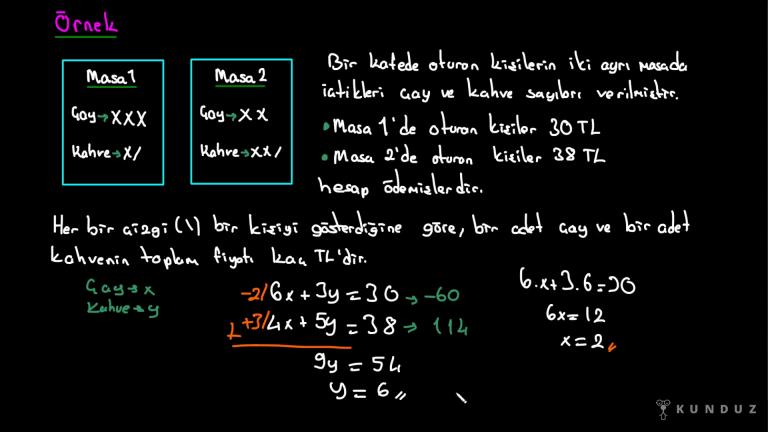 Örnek
Masa 1
Çay → XXX
Kahve → X/
Masa 2
Çay → XX
Kahve → XX/
Bir kafede oturan kişilerin iki ayrı masada
içtikleri çay ve kahve sayıları verilmiştir.
• Masa 1'de oturan kişiler 30 TL
• Masa 2'de oturan kişiler 38 TL
hesap ödemişlerdir.
Her bir çizgi (\) bir kişiyi gösterdiğine göre, bir adet çay ve bir adet
kahvenin toplam fiyatı kaç TL'dir.
Çay → x
Kahve → y
-2/ 6x + 3y = 30 → -60
+ +3/ 4x + 5y = 38 → 114
9y = 54
y = 6 //
6.x + 3.6 = 30
6x = 12
x = 2 //
KUNDUZ